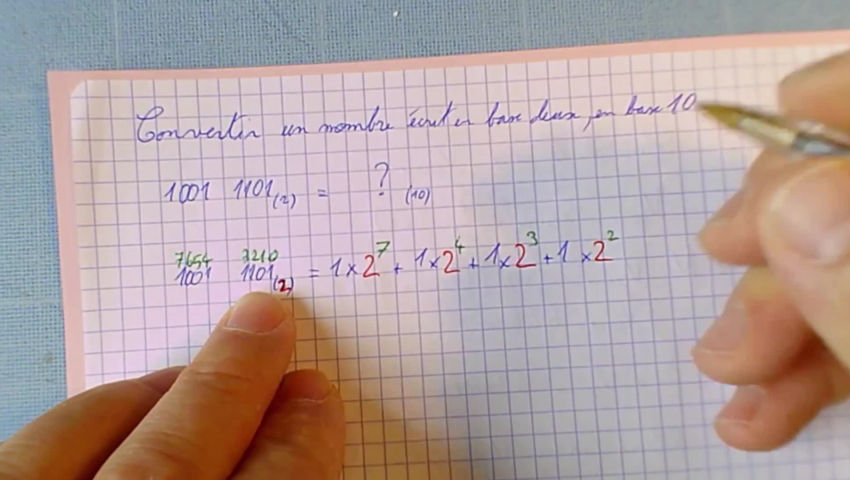 Convertir un nombre écrit en base deux, en base 10
1001 1101(2) = ? (10)
7654 3210
1001 1101(2) = 1×2⁷ + 1×2⁴ + 1×2³ + 1×2²